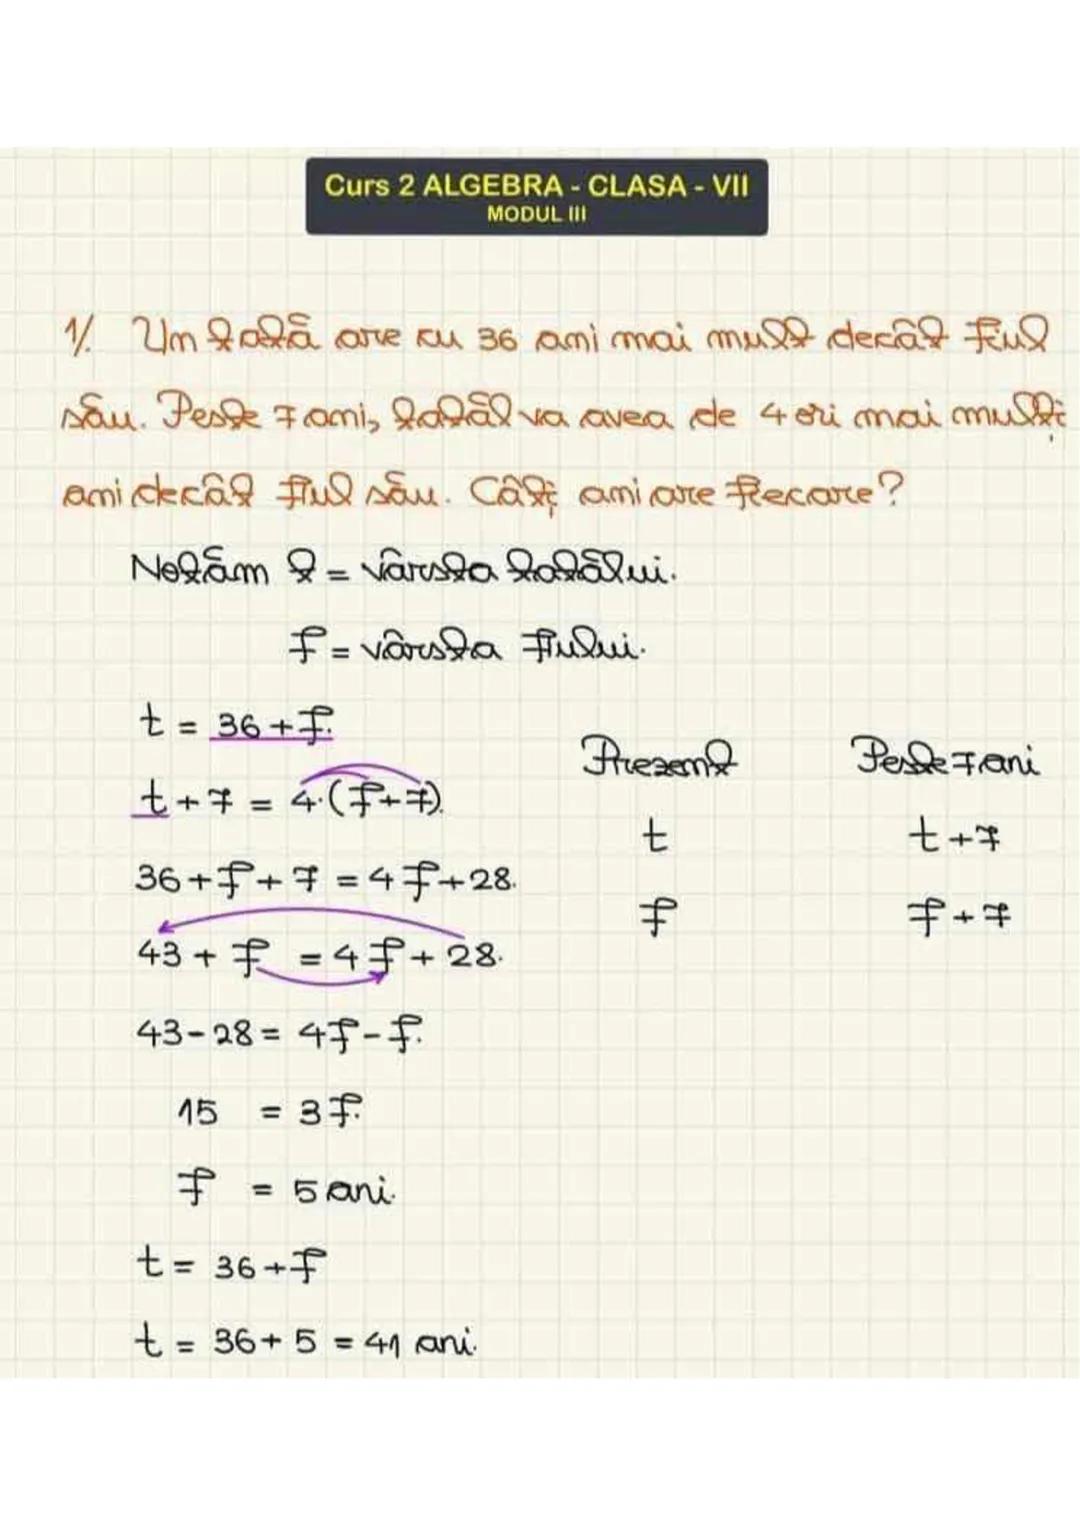 Curs 2 ALGEBRA - CLASA - VII
MODUL III
1/. Un tată are cu 36 ani mai mult decât fiul
său. Peste 7 ani, tatăl va avea de 4 ori mai mulți
ani decât fiul său. Câți ani are fiecare?
Notăm t = vârsta tatălui.
f = vârsta fiului.
t = 36 + f.
Prezent Peste 7 ani
t + 7 = 4·(f+7).
t t + 7
36 + f + 7 = 4f + 28.
f f + 7
43 + f = 4f + 28.
43 - 28 = 4f - f.
15 = 3f.
f = 5 ani.
t = 36 + f
t = 36 + 5 = 41 ani.